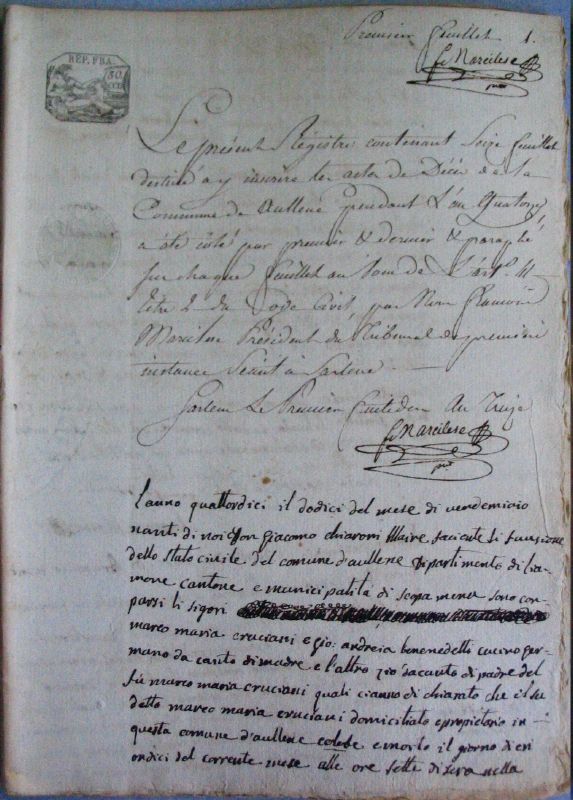 Premier feuillet 1.
REP. FRA.
50 CEN.
Le présent Régistre contenant Seize feuillets
destiné a y inscrire les actes de Décès de la
Commune de Aullene pendant L'an Quatorze,
a été coté par premier & dernier & paraphé
sur chaque feuillet au de L'art. 41
titre 2 du Code Civil, par Nous
Président du Tribunal de premiere
instance Séant à Sartene.
Sartene Le Premier An Treize
L'anno quattordici il dodici del mese di vendemicio
nanti di noi Don Giacomo chiaroni Maire facciente li funsione
dello stato civile del comune d'aullene Dipartimento di Lia-
mone cantone e municipalità di scopamena sono com-
parsi li sigori
marco maria cruciani e gio: andreia benedetti cucino ger-
mano da canto di madre e l'altro zio da canto di padre del
fù marco maria cruciani quali cianno dichiarato che il su
detto marco maria cruciani domiciliato e propietario in
questa comune d'aullene e morto il giorno di
ondici del corrente mese alle ore sette di sera nella